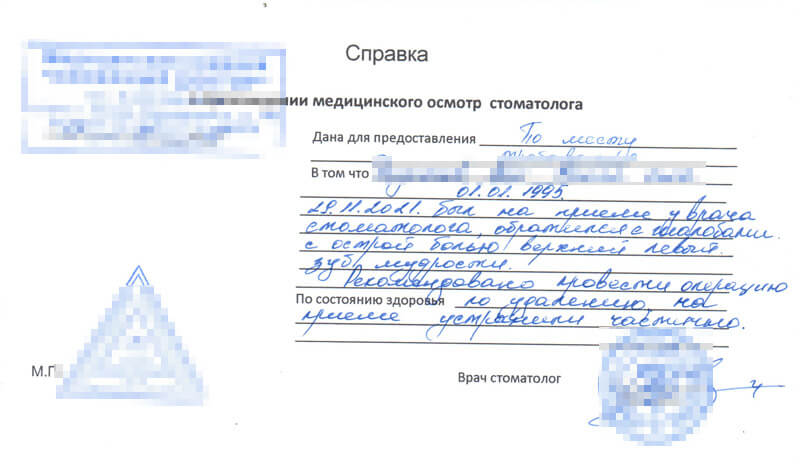 Справка
нии медицинского осмотр стоматолога
Дана для предоставления По месту
требования
В том что
01.01.1995.
29.11.2021. был на приеме у врача
стоматолога, обратился с жалобами
с острой болью верхний левый
зуб мудрости.
Рекомендовано провести операцию
По состоянию здоровья по удалению, на
приеме устранили частично.
М.П
Врач стоматолог